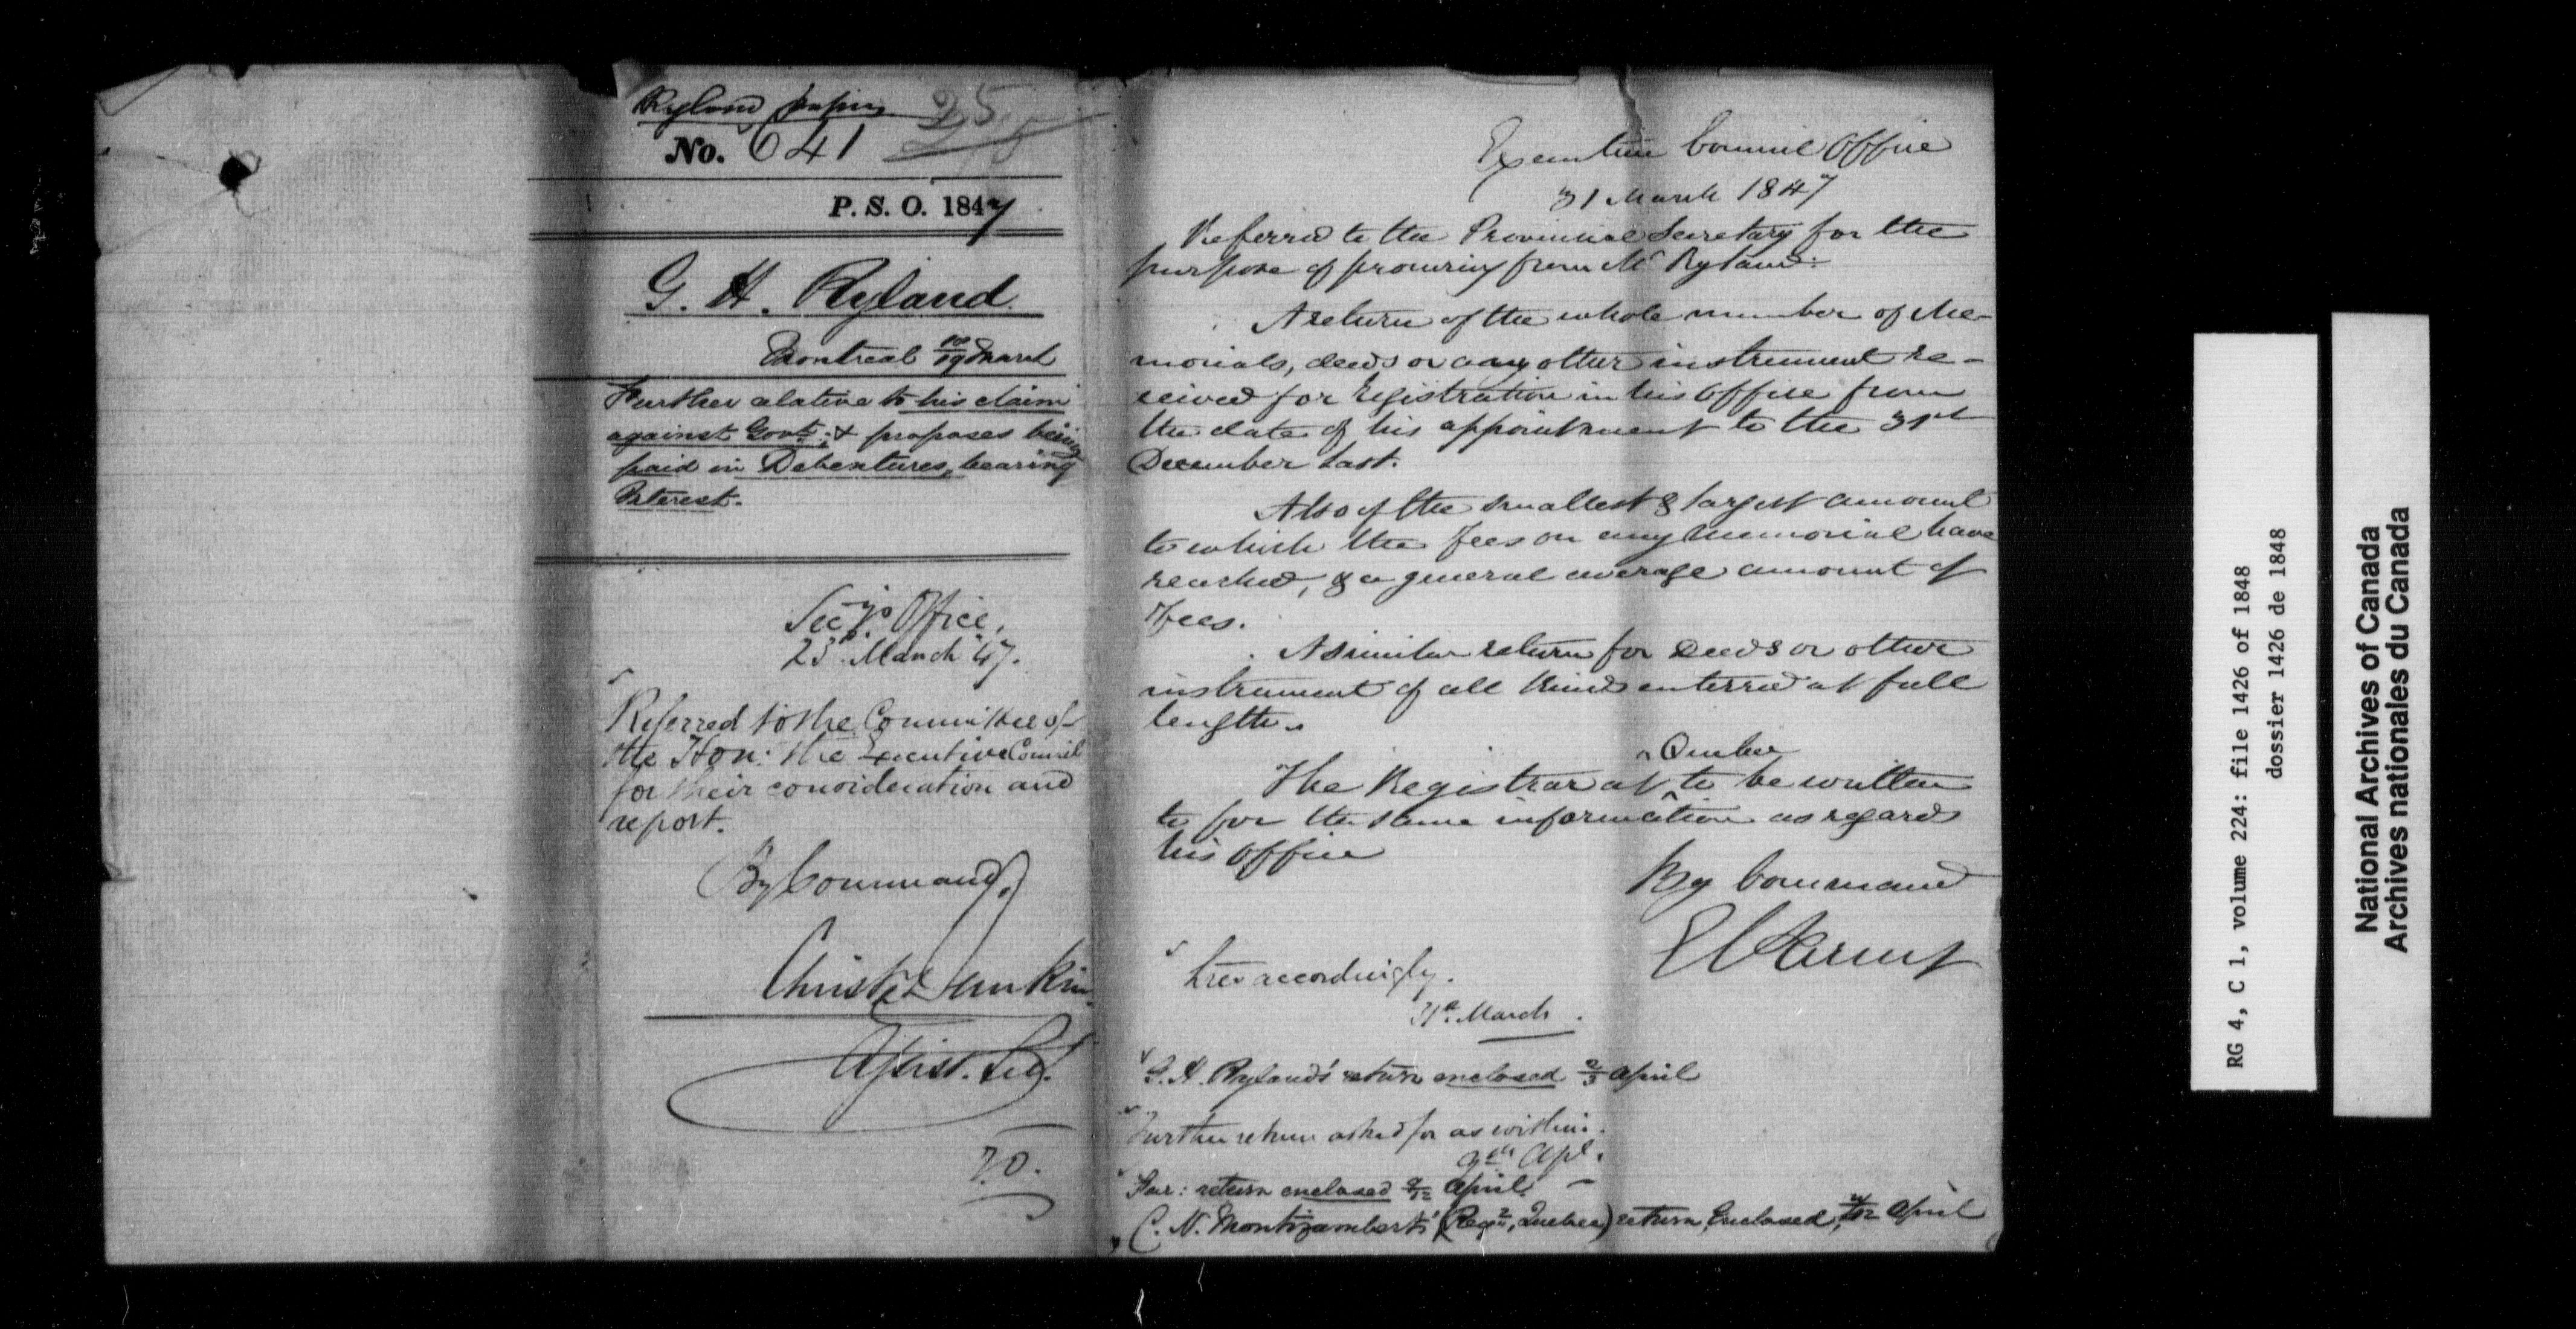 Ryland papers 25
No. 641
P. S. O. 1847
G. H. Ryland
Montreal 19 March
Further relative to his claim
against Govt; & proposes being
paid in Debentures, bearing
Interest.
Secy's Office,
23d. March 47.
Referred to the Committee of
the Hon: the Executive Council
for their consideration and
report.
By Command,
Christr. Dunkin
Assist. Sec.
Executive Council Office
31 March 1847
Referred to the Provincial Secretary for the
purpose of procuring from Mr Ryland:
A return of the whole number of Me-
morials, deeds or any other instrument re-
ceived for Registration in his Office from
the date of his appointment to the 31st
December last.
Also of the smallest & largest amount
to which the fees on any memorial have
reached, & a general average amount of
Fees.
A similar return for Deeds or other
instrument of all kind enterred at full
length.
The Registrar at Quebec to be written
to for the same information as regards
his Office
By Command
Ltres accordingly.
31st March.
G. H. Ryland's return enclosed 2/3 April
Further return asked for as within.
9th Apl.
Fur: return enclosed 9/12 April
C. N. Montizambert's (Regr, Quebec) return, Enclosed, April
RG 4, C 1, volume 224: file 1426 of 1848
dossier 1426 de 1848
National Archives of Canada
Archives nationales du Canada